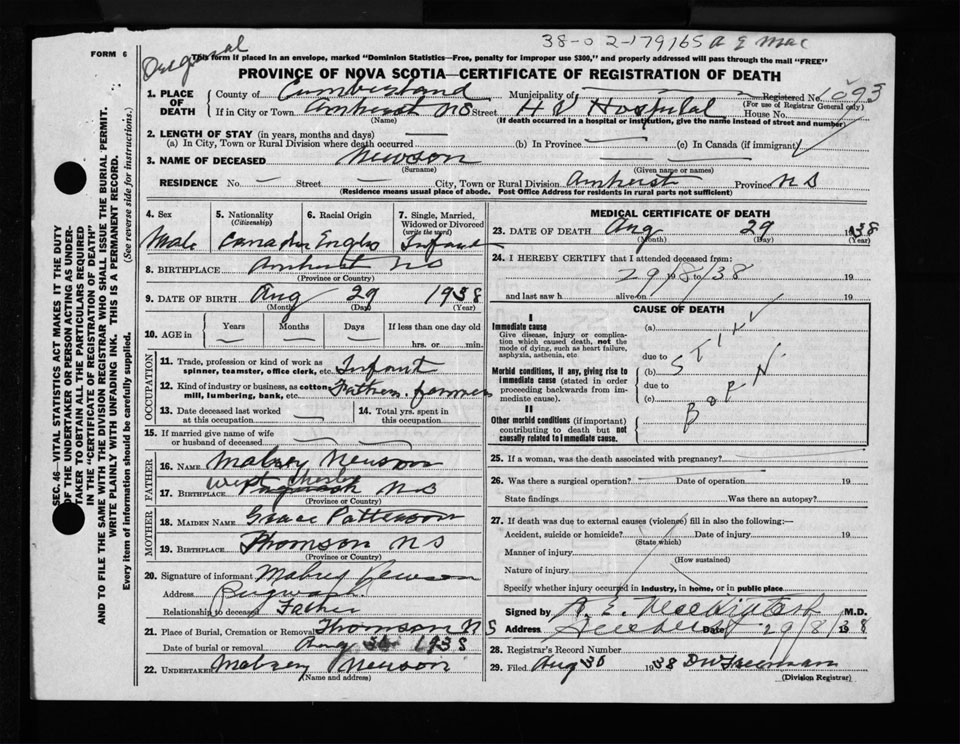 FORM 6
38-0 2-179165 A E Mac
Original
This form if placed in an envelope, marked "Dominion Statistics—Free, penalty for improper use $300," and properly addressed will pass through the mail "FREE"
PROVINCE OF NOVA SCOTIA—CERTIFICATE OF REGISTRATION OF DEATH
1. PLACE OF DEATH
County of Cumberland Municipality of Registered No. 1093
(For use of Registrar General only)
If in City or Town Amherst NS Street H V Hospital House No.
(Name) (If death occurred in a hospital or institution, give the name instead of street and number)
2. LENGTH OF STAY (in years, months and days)
(a) In City, Town or Rural Division where death occurred (b) In Province (c) In Canada (if immigrant)
3. NAME OF DECEASED Newson
(Surname) (Given name or names)
RESIDENCE No. — Street — City, Town or Rural Division Amherst Province NS
(Residence means usual place of abode. Post Office Address for residents in rural parts not sufficient)
SEC. 46—VITAL STATISTICS ACT MAKES IT THE DUTY
OF THE UNDERTAKER OR PERSON ACTING AS UNDER-
TAKER TO OBTAIN ALL THE PARTICULARS REQUIRED
IN THE "CERTIFICATE OF REGISTRATION OF DEATH"
AND TO FILE THE SAME WITH THE DIVISION REGISTRAR WHO SHALL ISSUE THE BURIAL PERMIT.
WRITE PLAINLY WITH UNFADING INK. THIS IS A PERMANENT RECORD.
Every item of information should be carefully supplied. (See reverse side for instructions.)
4. Sex
Male
5. Nationality
(Citizenship)
Canadian
6. Racial Origin
English
7. Single, Married,
Widowed or Divorced
(write the word)
Infant
8. BIRTHPLACE Amherst NS
(Province or Country)
9. DATE OF BIRTH Aug 29 1938
(Month) (Day) (Year)
10. AGE in
Years Months Days If less than one day old
— — — hrs. or min.
OCCUPATION
11. Trade, profession or kind of work as
spinner, teamster, office clerk, etc. Infant
12. Kind of industry or business, as cotton
mill, lumbering, bank, etc. Father farmer
13. Date deceased last worked
at this occupation —
14. Total yrs. spent in
this occupation
15. If married give name of wife
or husband of deceased
FATHER
16. NAME Mabrey Newson
West Chester
17. BIRTHPLACE Pugwash NS
(Province or Country)
MOTHER
18. MAIDEN NAME Grace Patterson
19. BIRTHPLACE Thomson NS
(Province or Country)
20. Signature of informant Mabrey Newson
Address Pugwash
Relationship to deceased Father
21. Place of Burial, Cremation or Removal Thomson NS
Date of burial or removal Aug 30 1938
22. UNDERTAKER Mabrey Newson
(Name and address)
MEDICAL CERTIFICATE OF DEATH
23. DATE OF DEATH Aug 29 1938
(Month) (Day) (Year)
24. I HEREBY CERTIFY that I attended deceased from:
29/8/38 to 19
and last saw h alive on 19
CAUSE OF DEATH
I
Immediate cause
Give disease, injury or complica-
tion which caused death, not the
mode of dying, such as heart failure,
asphyxia, asthenia, etc
(a)
due to
Morbid conditions, if any, giving rise to
immediate cause (stated in order
proceeding backwards from im-
mediate cause).
(b)
due to
(c)
STILL
BORN
II
Other morbid conditions (if important)
contributing to death but not
causally related to immediate cause.
25. If a woman, was the death associated with pregnancy?
26. Was there a surgical operation? Date of operation 19
State findings Was there an autopsy?
27. If death was due to external causes (violence) fill in also the following:—
Accident, suicide or homicide? Date of injury 19
(State which)
Manner of injury
(How sustained)
Nature of injury
Specify whether injury occurred in industry, in home, or in public place.
Signed by M.D.
Address Amherst Date 29/8/1938
28. Registrar's Record Number
29. Filed Aug 30 1938 DW Freeman
(Division Registrar)